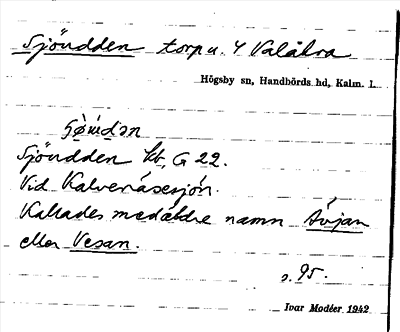 Sjöudden torp u. Y Valåkra
Högsby sn, Handbörds hd, Kalm. l.
Sjöudden kt, G 22.
Vid Kalvenäsesjön.
Kallades med äldre namn
eller Vesan.
s. 95.
Ivar Modéer 1942